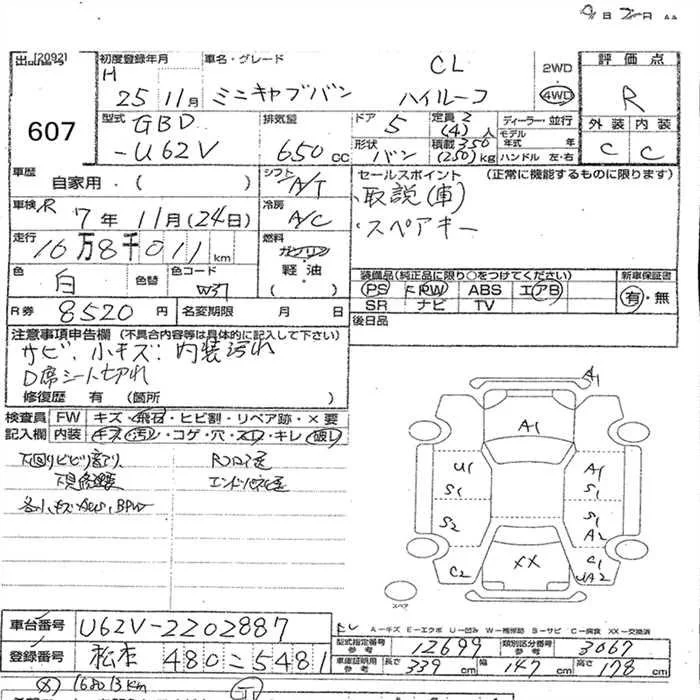 出品番号 [2092]
607
初度登録年月
H 25 11月
車名・グレード
CL
ミニキャブバン ハイルーフ
2WD
4WD
評価点
R
外装 内装
C C
型式
GBD
-U62V
排気量
650 cc
ドア
5
形状
バン
定員 2
(4)人
積載 350
(250)kg
ディーラー・並行
モデル
年式 年
ハンドル 左・右
車歴
自家用・( )
シフト
A/T
車検 R 7年 11月(24日)
冷房
A/C
走行
16万8千011 km
燃料
ガソリン
軽油
( )
色
白
色替
色コード
W37
R券 8520円
名変期限 月 日
セールスポイント (正常に機能するものに限ります)
取説(車)
・スペアキー
装備品(純正品に限り○をつけてください)
PS PW ABS エアB
SR ナビ TV
新車保証書
有・無
後日品
注意事項申告欄 (不具合内容等は具体的に記入して下さい)
サビ、小キズ、内装汚れ
D席シート切れ
修復歴 有 (箇所 )
検査員 FW キズ・飛石・ヒビ割・リペア跡・×要
記入欄 内装 キズ・汚レ・コゲ・穴・スレ・キレ・破レ
A1
A1
U1
S1
S2
C2
A1
S1
S1
A1
C1
XX
スペア
A－キズ E－エクボ U－凹み W－補修跡 S－サビ C－腐食 XX－交換済
車台番号 U62V-2202887
登録番号 松本 480 こ 5481
型式指定番号
参考
12699
類別区分番号
参考
3067
車庫証明用
参考
長さ 339cm 幅 147cm 高さ 178cm